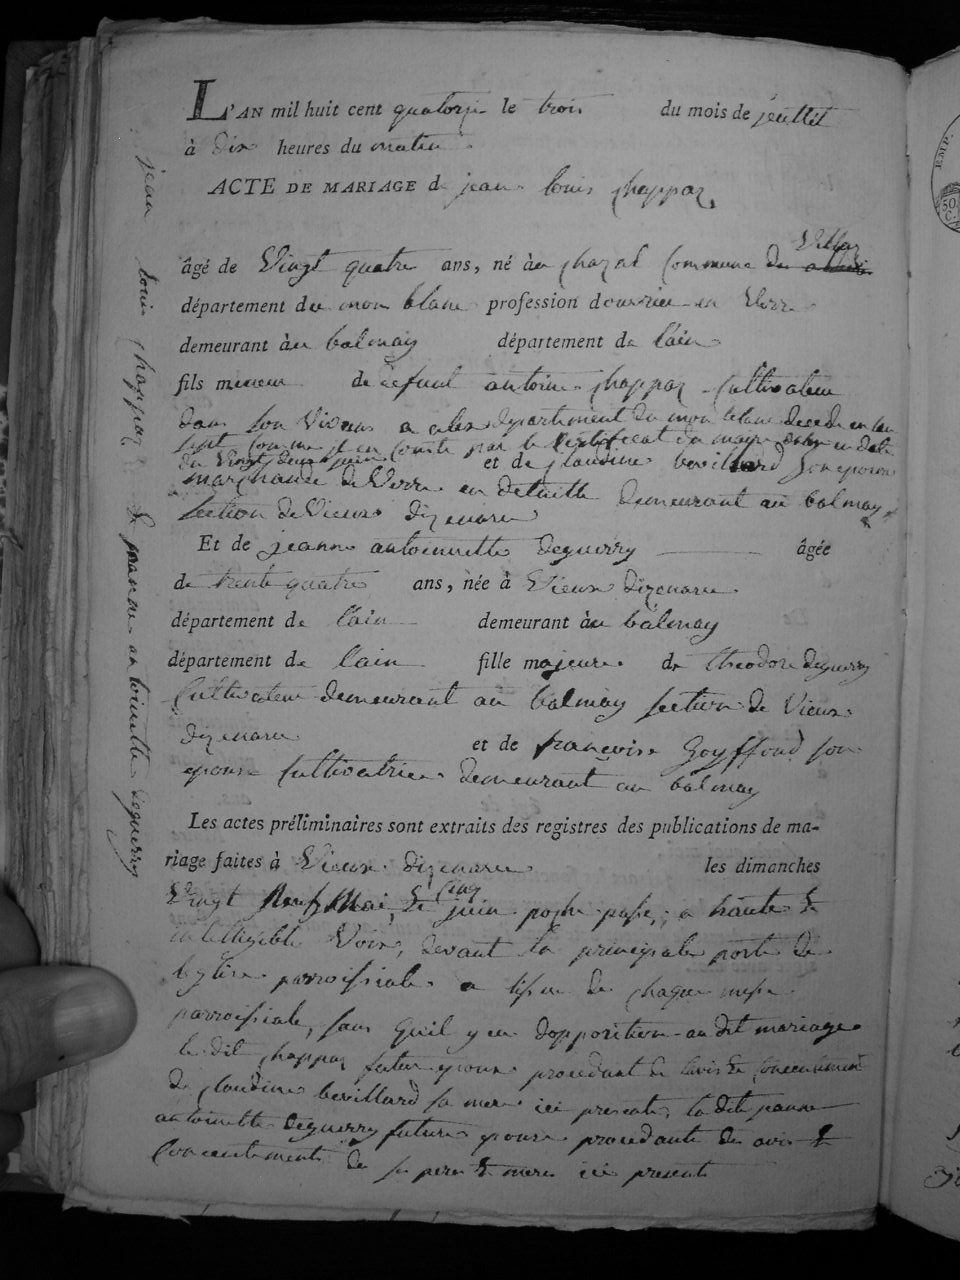 L'AN mil huit cent quatorze le trois du mois de jeuillet
à dix heures du matin
ACTE DE MARIAGE de jean louis chappaz
âgé de Vingt quatre ans, né à chazal Commune de Villaz
département du mon blanc profession d'ouvrier en Verre
demeurant au balmay département de l'ain
fils mineur de defunt antoine chappaz Cultivateur
dans son Vivant a département du mon blanc decedé en
sept comme il en Conste par le Certificat du maire en date
du Vingt deux juin et de claudine bevillard son epouse
marchande de Verre en detaille demeurant au balmay
section de Vieux dizenave
Et de jeanne antoinette deguerry âgée
de trente quatre ans, née à Vieux dizenave
département de l'ain demeurant au balmay
département de lain fille majeure de theodore deguerry
Cultivateur demeurant au balmay section de Vieux
dizenave et de francoise Goyffond son
epouse Cultivatrice demeurant au balmay
Les actes préliminaires sont extraits des registres des publications de ma-
riage faites à Vieux dizenave les dimanches
Vingt Neuf Mai, et Cinq juin proche passe, a haute et
intelligible Voix, devant la principale porte de
leglise parroissiale a lissue de chaque messe
parroissiale, sans quil y eu dopposition au dit mariage
le dit chappaz futur epoux procedant de lavis et Concentement
de claudine bevillard sa mere ici presente, la dit jeanne
antoinette deguerry future epouse procedante de avis et
Concentement de se pere et mere ici present
jean louis chappaz et jeanne antoinette deguerry
EMP.
50
C.